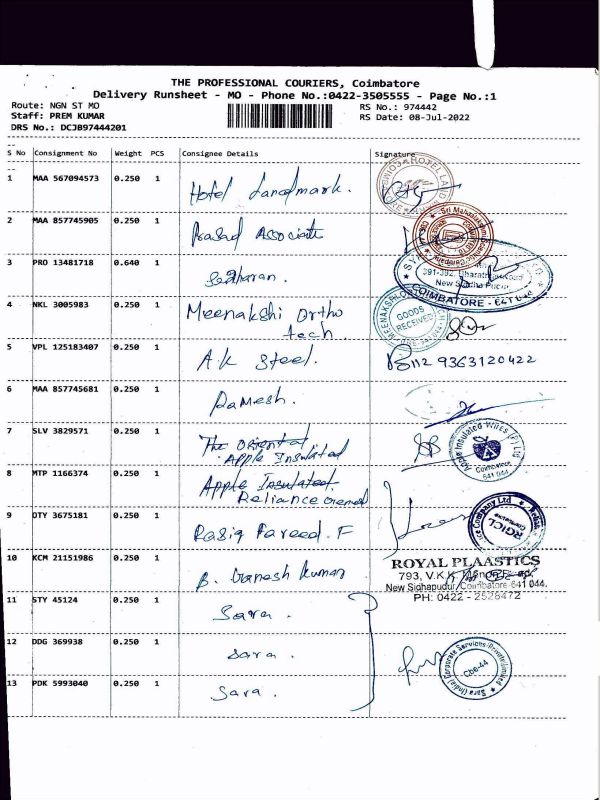 THE PROFESSIONAL COURIERS, Coimbatore
Delivery Runsheet - MO - Phone No.:0422-3505555 - Page No.:1
Route: NGN ST MO
Staff: PREM KUMAR
DRS No.: DCJB97444201
RS No.: 974442
RS Date: 08-Jul-2022
S No Consignment No Weight PCS Consignee Details Signature
1 MAA 567094573 0.250 1 Hotel Landmark.
2 MAA 857745905 0.250 1 Prasad Associate
3 PRO 13481718 0.640 1
391-392, Bharathi Road
New Siddha Pudur
COIMBATORE - 641 044
4 NKL 3005983 0.250 1 Meenakshi Ortho
tech.
GOODS
RECEIVED
5 VPL 125183407 0.250 1 AK Steel. 9363120422
6 MAA 857745681 0.250 1 Ramesh.
7 SLV 3829571 0.250 1 The Oriental
Apple Insulated
Apple Insulated Wires (P) Ltd
Coimbatore
641 044
8 MTP 1166374 0.250 1 Apple Insulated.
Reliance General
9 DTY 3675181 0.250 1 Rasiq Fareed. F
RGICL
10 KCM 21151986 0.250 1 B. Ganesh Kumar
ROYAL PLAASTICS
793, V.K.K. Menon Road,
New Sidhapudur, Coimbatore-641 044.
PH: 0422 - 2528472
11 STY 45124 0.250 1 Sara.
12 DDG 369938 0.250 1 Sara.
13 PDK 5993040 0.250 1 Sara.
Sara (India) Corporate Services Private Limited
Cbe-44